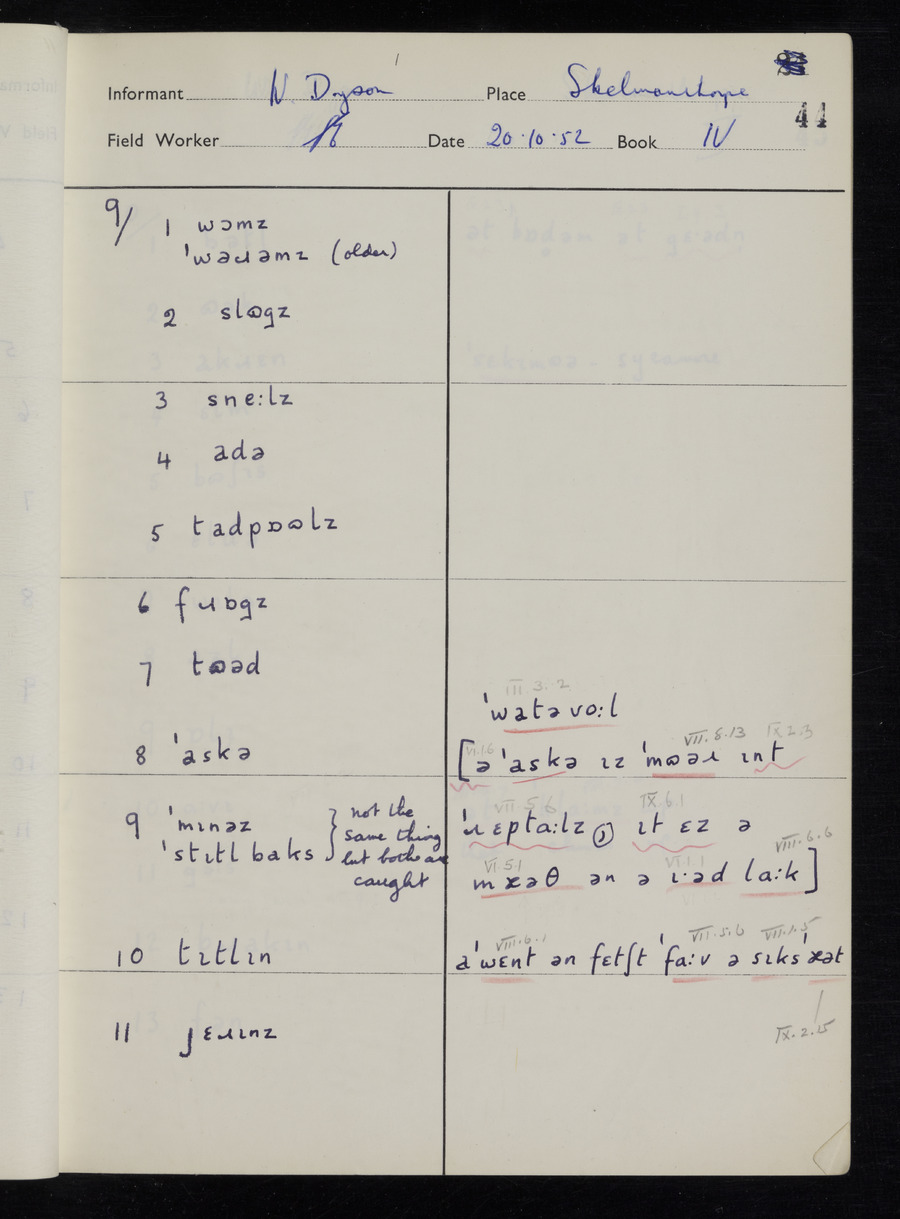 Informant N. Dyson Place Skelmanthorpe
44
Field Worker Date 20·10·52 Book IV
9/ 1 wɔmz
ˈwəɹəmz (older)
2 slɷgz
3 sne:lz
4 adə
5 tadpɒɷlz
6 fɹɒgz
7 tɷəd
III.3.2
ˈwatə vo:l
8 ˈaskə
VI.1.6 VII.8.13 IX.2.3
[ə ˈaskə ɪz ˈmɷəɹ ɪnt
9 ˈmɪnəz
ˈstɪtl baks } not the same thing but both are caught
VII.5.6 IX.6.1
ˈɹɛpta:lz ɪt ɛz ə
VI.5.1 VI.1.1 VIII.6.6
mæəθ ən ə ɪ·əd la:k]
10 tɪtlɪn
VIII.6.1 VII.5.6 VII.1.5
aˈwɛnt ən fɛtʃt ˈfa:v ə sɪksˈæət
IX.2.15
11 jɛɹɪnz